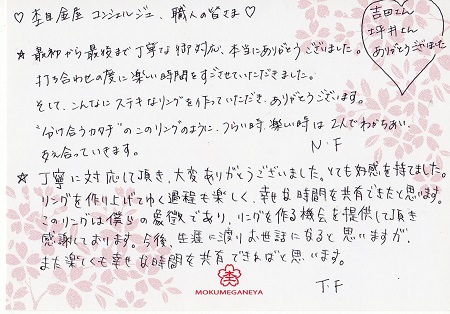 ♡ 杢目金屋 コンシェルジュ、職人の皆さま ♡
吉田さん
坪井さん
ありがとうございました
☆ 最初から最後まで丁寧な御対応、本当にありがとうございました。
打ち合わせの度に楽しい時間をすごさせていただきました。
そして、こんなにステキなリングを作っていただき、ありがとうございます。
"分け合うカタチ"のこのリングのように、つらい時、楽しい時は2人でわかちあい、
支え合っていきます。
N.F
☆ 丁寧に対応して頂き、大変ありがとうございました。とても好感を持てました。
リングを作り上げてゆく過程も楽しく、幸せな時間を共有できたと思います。
このリングは僕らの象徴であり、リングを作る機会を提供して頂き
感謝しております。今後、生涯に渡りお世話になると思いますが、
また楽しくも幸せな時間を共有できればと思います。
MOKUMEGANEYA
T.F